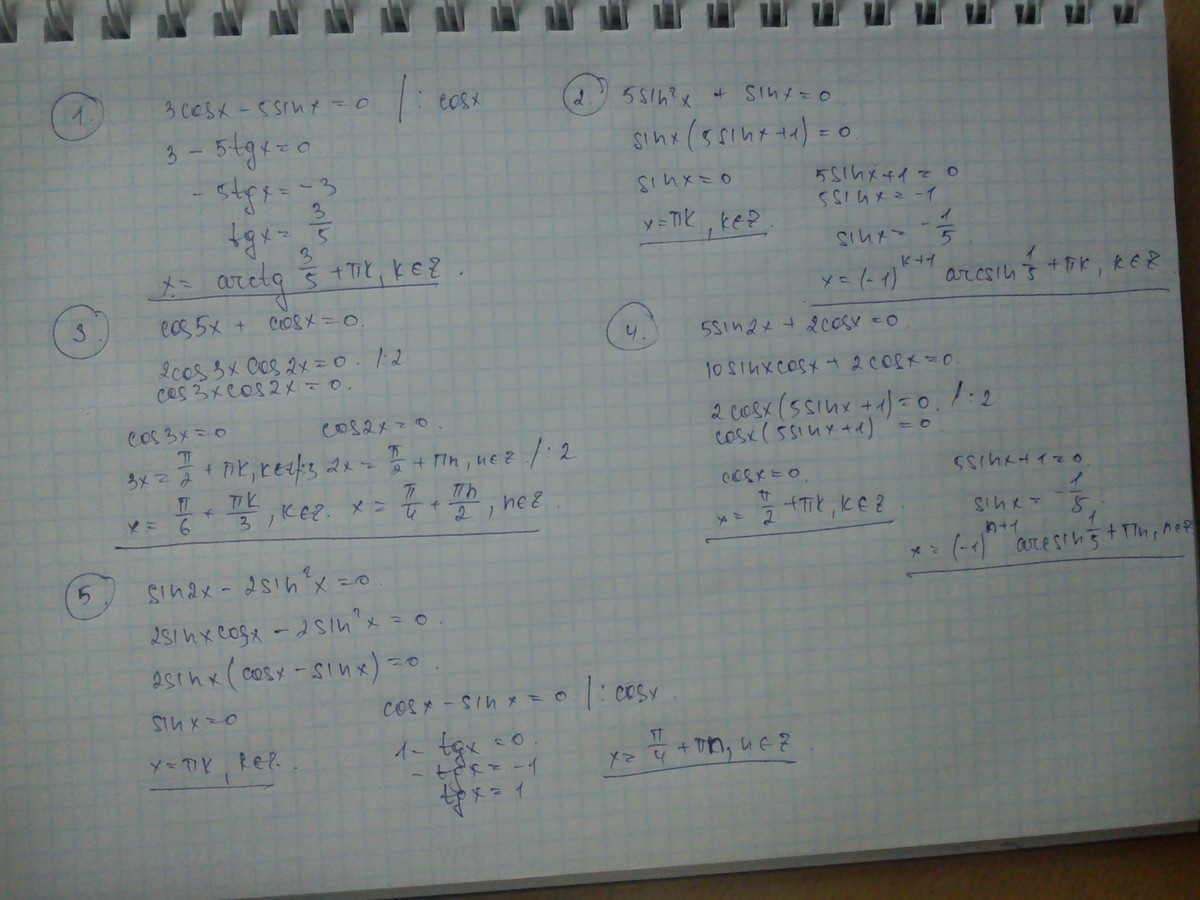 1. 3cosx - 5sinx = 0 /: cosx
3 - 5tgx = 0.
- 5tgx = -3
tgx = 3/5
x = arctg 3/5 + πk, k∈Z.
2. 5sin²x + sinx = 0.
sinx(5sinx+1) = 0.
sinx = 0
x = πk, k∈Z.
5sinx+1 = 0
5sinx = -1
sinx = -1/5
x = (-1)^(k+1) arcsin 1/5 + πk, k∈Z
3. cos5x + cosx = 0.
2cos3x cos2x = 0. /:2
cos3x cos2x = 0.
cos3x = 0 cos2x = 0.
3x = π/2 + πk, k∈Z /:3 2x = π/2 + πn, n∈Z /:2
x = π/6 + πk/3, k∈Z. x = π/4 + πn/2, n∈Z.
4. 5sin2x + 2cosx = 0.
10sinxcosx + 2cosx = 0.
2cosx(5sinx+1) = 0. /:2
cosx(5sinx+1) = 0
cosx = 0.
x = π/2 + πk, k∈Z
5sinx+1 = 0.
sinx = -1/5.
x = (-1)^(n+1) arcsin 1/5 + πn, n∈Z
5. sin2x - 2sin²x = 0.
2sinxcosx - 2sin²x = 0.
2sinx(cosx - sinx) = 0.
sinx = 0
x = πk, k∈Z.
cosx - sinx = 0 /: cosx.
1 - tgx = 0.
- tgx = -1
tgx = 1
x = π/4 + πn, n∈Z.